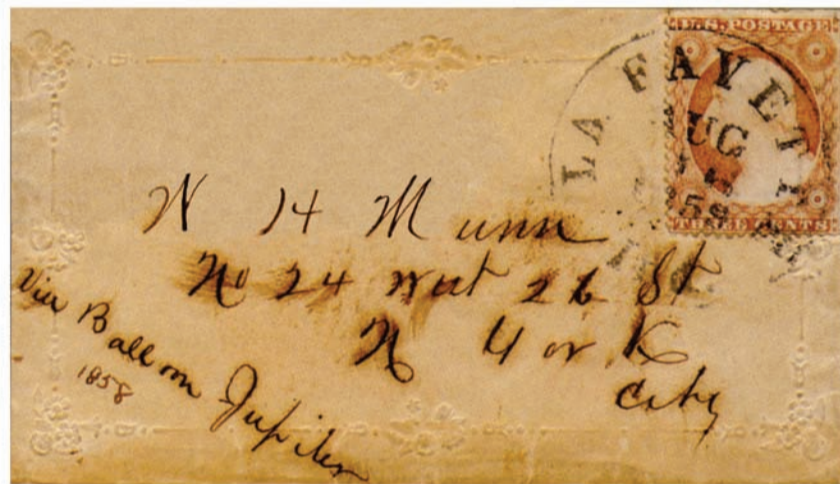 U.S. POSTAGE
LA FAYET
UG
58
THREE CENTS
W H Munn
No 24 West 26 St
N York
City
Via Balloon Jupiter
1858